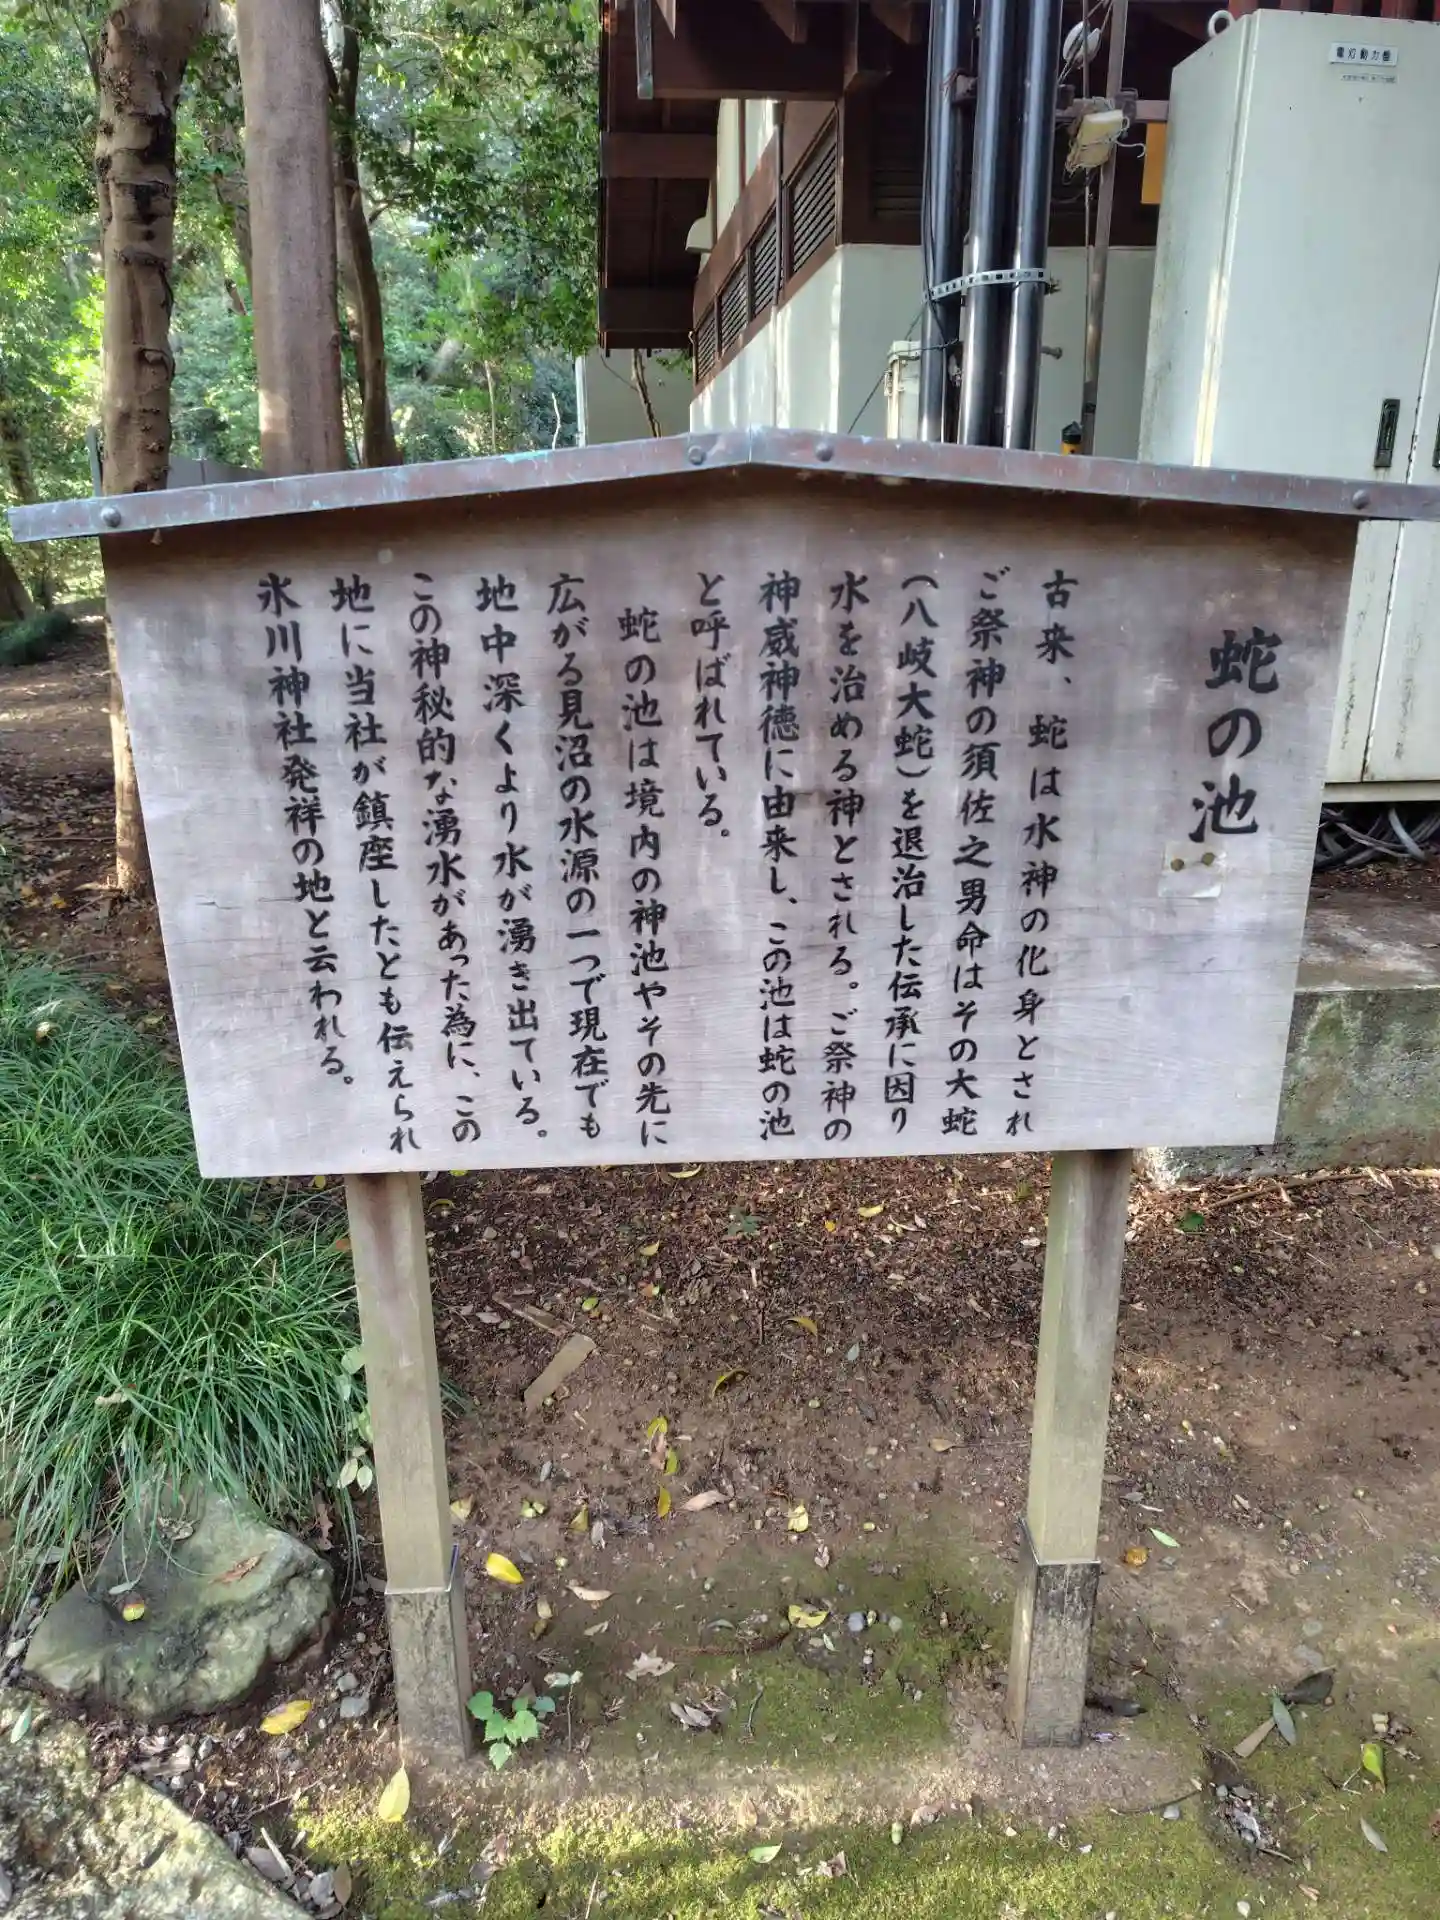 電灯動力盤
蛇の池
古来、蛇は水神の化身とされ
ご祭神の須佐之男命はその大蛇
（八岐大蛇）を退治した伝承に因り
水を治める神とされる。ご祭神の
神威神徳に由来し、この池は蛇の池
と呼ばれている。
蛇の池は境内の神池やその先に
広がる見沼の水源の一つで現在でも
地中深くより水が湧き出ている。
この神秘的な湧水があった為に、この
地に当社が鎮座したとも伝えられ
氷川神社発祥の地と云われる。